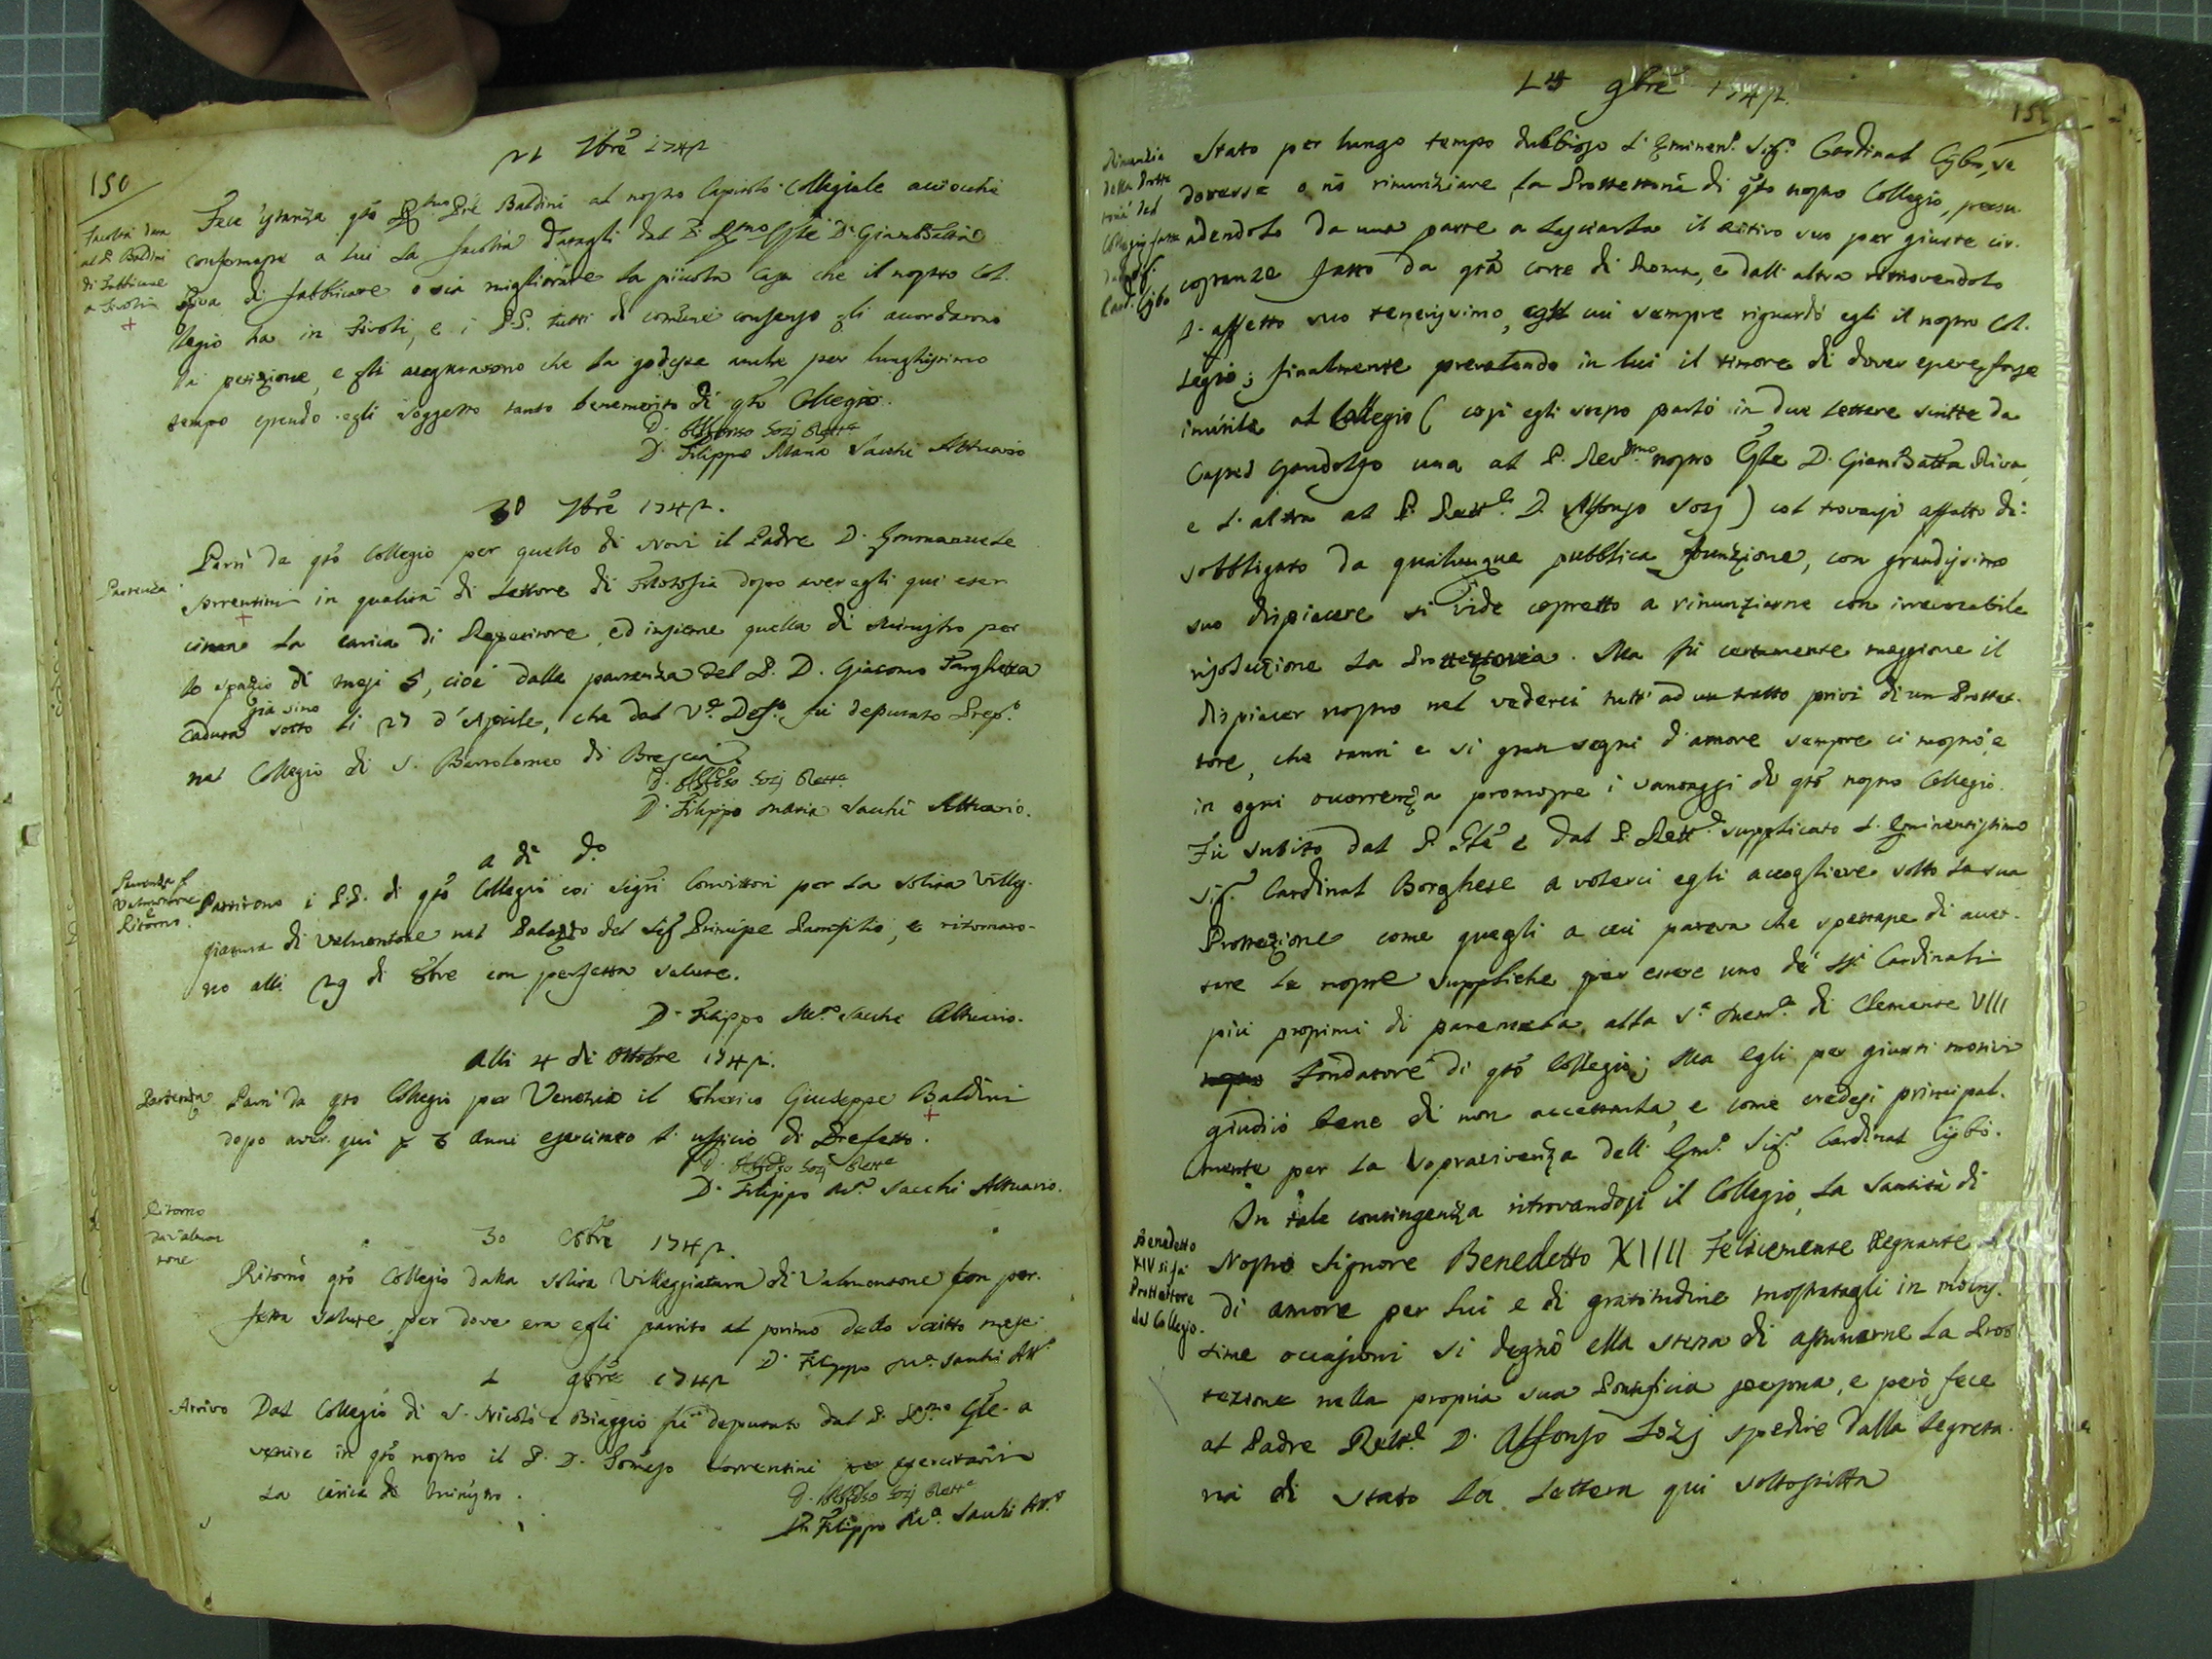 150
21 7bre 1742
Facoltà data
al P. Baldini
di Fabbricare
a Tivoli
Fece istanza qto Rmo Pre Baldini al nostro Capitolo Collegiale acciochè
confermasse a lui la facoltà datagli dal P. Rmo Gnle D. GiamBatta
Riva di fabbricare o sia migliorare la piccola Casa che il nostro Col-
legio ha in Tivoli, e i P.P. tutti di comune consenso gli accordarono
la petizione, e gli augurarono che la godesse anche per lunghissimo
tempo essendo egli soggetto tanto benemerito di qto Collegio.
D. Alfonso Sozj Rettre
D. Filippo Maria Sacchi Attuario
30 7bre 1742.
Partenza
Partì da qto Collegio per quello di Novi il Padre D. Emmanuele
Sorrentini in qualità di Lettore di Filosofia dopo aver egli quì eser
citata la carica di Repetitore, ed insieme quella di Ministro per
lo spazio di mesi 5, cioè dalla partenza del P. D. Giacomo Targhetta
già sino
caduta sotto li 27 d'Aprile, che dal Ve. Defo. fù deputato Prepo.
nel Collegio di S. Bartolomeo di Brescia.
D. Alfonso Sozj Rettre
D. Filippo Maria Sacchi Attuario.
a dì do
Partenza p
Valmontone
e
Ritorno.
Partirono i P.P. di qto Collegio coi Sigri Convittori per la solita Villeg-
giatura di Valmontone nel Palazzo del Sig Principe Pamfilio, e ritornaro-
no alli 29 di 8bre con perfetta salute.
D. Filippo Ma. Sacchi Attuario.
alli 4 di Ottobre 1742.
Partenza
Partì da qto Collegio per Venezia il Chierico Giuseppe Baldini
dopo aver quì p 3 anni esercitato l'ufficio di Prefetto.
D. Alfonso Sozj Rettre
D. Filippo Ma. Sacchi Attuario.
Ritorno
da Valmon
tone
30 8bre 1742.
Ritornò qto Collegio dalla solita Villeggiatura di Valmontone con per-
fetta salute, per dove era egli partito al primo dello scritto mese.
D. Filippo Ma. Sacchi Att.
1 9bre 1742
Arrivo
Dal Collegio di S. Nicolò e Biaggio fù deputato dal P. Rmo Gle. a
venire in qto nostro il P. D. Tomaso Sorrentini ad esercitarvi
la carica di Ministro.
D. Alfonso Sozj Rettre
D. Filippo Ma. Sacchi Att.
151
9bre 1742.
Rinunzia
della Protte
toria del
Collegio fatta
dal Sig.
Card. Cybo
Stato per lungo tempo dubbioso l'Eminen. Sig. Cardinal Cybo, se
dovesse o nò rinunziare la Prottettoria di qto nostro Collegio, persu-
adendolo da una parte a lasciarla il ritiro suo per giuste cir-
costanze fatto da qta corte di Roma, e dall'altra ritrovendolo
l'affetto suo tenerissimo, cui sempre riguardò egli il nostro Col-
legio; finalmente prevalendo in lui il timore di dover essere forse
inutile al Collegio (così egli stesso parlò in due lettere scritte da
Castel Gandolfo una al P. Revdmo nostro Gle D. GianBatta Riva,
e l'altra al P. Rett.e D. Alfonso Sozj) col trovarsi affatto di-
sobbligato da qualunque pubblica funzione, con grandissimo
suo dispiacere si vide costretto a rinunziarne con irrevocabile
risoluzione la Prottettoria. Ma fù certamente maggiore il
dispiacer nostro nel vederci tutt'ad un tratto privi di un Prottet-
tore, che tanti e sì gran segni d'amore sempre ci mostrò, e
in ogni occorrenza promosse i vantaggi di qto nostro Collegio.
Fù subito dal P. Gle e dal P. Rett.e supplicato l'Eminentissimo
Sig. Cardinal Borghese a volerci egli accogliere sotto la sua
Prottezione come quegli a cui pareva che spettasse di accet-
tare le nostre suppliche per essere uno de' Cardinali
più prossimi di parentela alla Sa. Mema. di Clemente VIII
Fondatore di qto Collegio; Ma egli per giusti motivi
giudicò bene di non accettarla, e come credesi principal-
mente per la sopravivenza dell'Em. Sig. Cardinal Cybò.
In tale contingenza ritrovandosi il Collegio, la Santità di
Benedetto
XIV si fà
Prottettore
del Collegio.
Nostro Signore Benedetto XIIII Felicemente Regnante
di amore per lui e di gratitudine mostratagli in moltis-
sime occasioni si degnò ella stessa di assumerne la Prot
tezione nella propria sua Pontificia persona, e però fece
al Padre Rett.e D. Alfonso Sozj spedire dalla Segreta-
ria di stato la Lettera qui sottoscritta